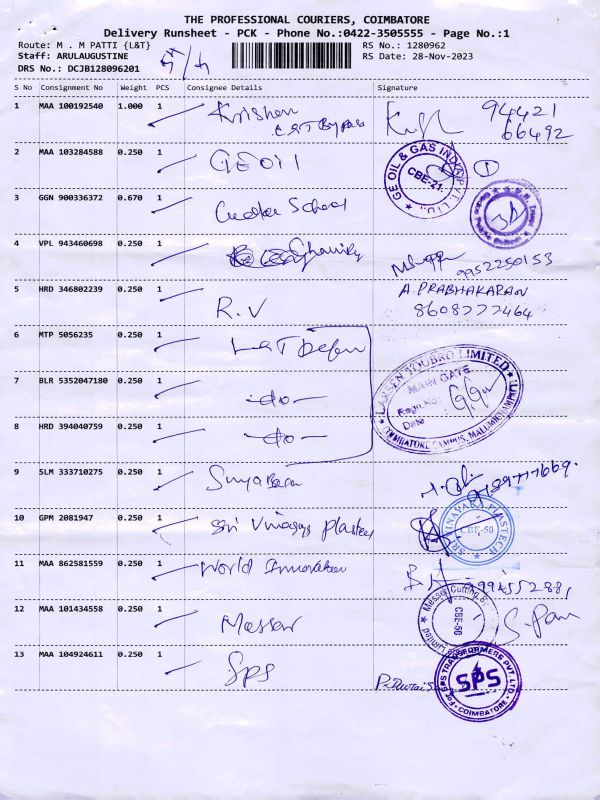 THE PROFESSIONAL COURIERS, COIMBATORE
Delivery Runsheet - PCK - Phone No.:0422-3505555 - Page No.:1
Route: M . M PATTI {L&T}
RS No.: 1280962
Staff: ARULAUGUSTINE
RS Date: 28-Nov-2023
DRS No.: DCJB128096201
S No Consignment No Weight PCS Consignee Details Signature
1 MAA 100192540 1.000 1 Krishna 94421
L&T Bypass 66492
2 MAA 103284588 0.250 1 GE OIL
GE OIL & GAS INDIA PVT. LTD. CBE-21 1
3 GGN 900336372 0.670 1 School
4 VPL 943460698 0.250 1 9952250153
5 HRD 346802239 0.250 1 R.V A.PRABHAKARAN
8608222464
6 MTP 5056235 0.250 1 L&T Defen
LARSEN TOUBRO LIMITED
MAIN GATE
Regn.No:
Date
COIMBATORE CAMPUS,
7 BLR 5352047180 0.250 1 -do-
8 HRD 394040759 0.250 1 -do-
9 SLM 333710275 0.250 1
10 GPM 2081947 0.250 1 Sri Vinayaga Plastech
SRI VINAYAKA PLASTECH CBE-50
11 MAA 862581559 0.250 1 World Innovation 994552881
12 MAA 101434558 0.250 1 Messer
Messer Cutting Limited CBE-50
13 MAA 104924611 0.250 1 SPS
For SPS TRANSFORMERS PVT. LTD. SPS COIMBATORE